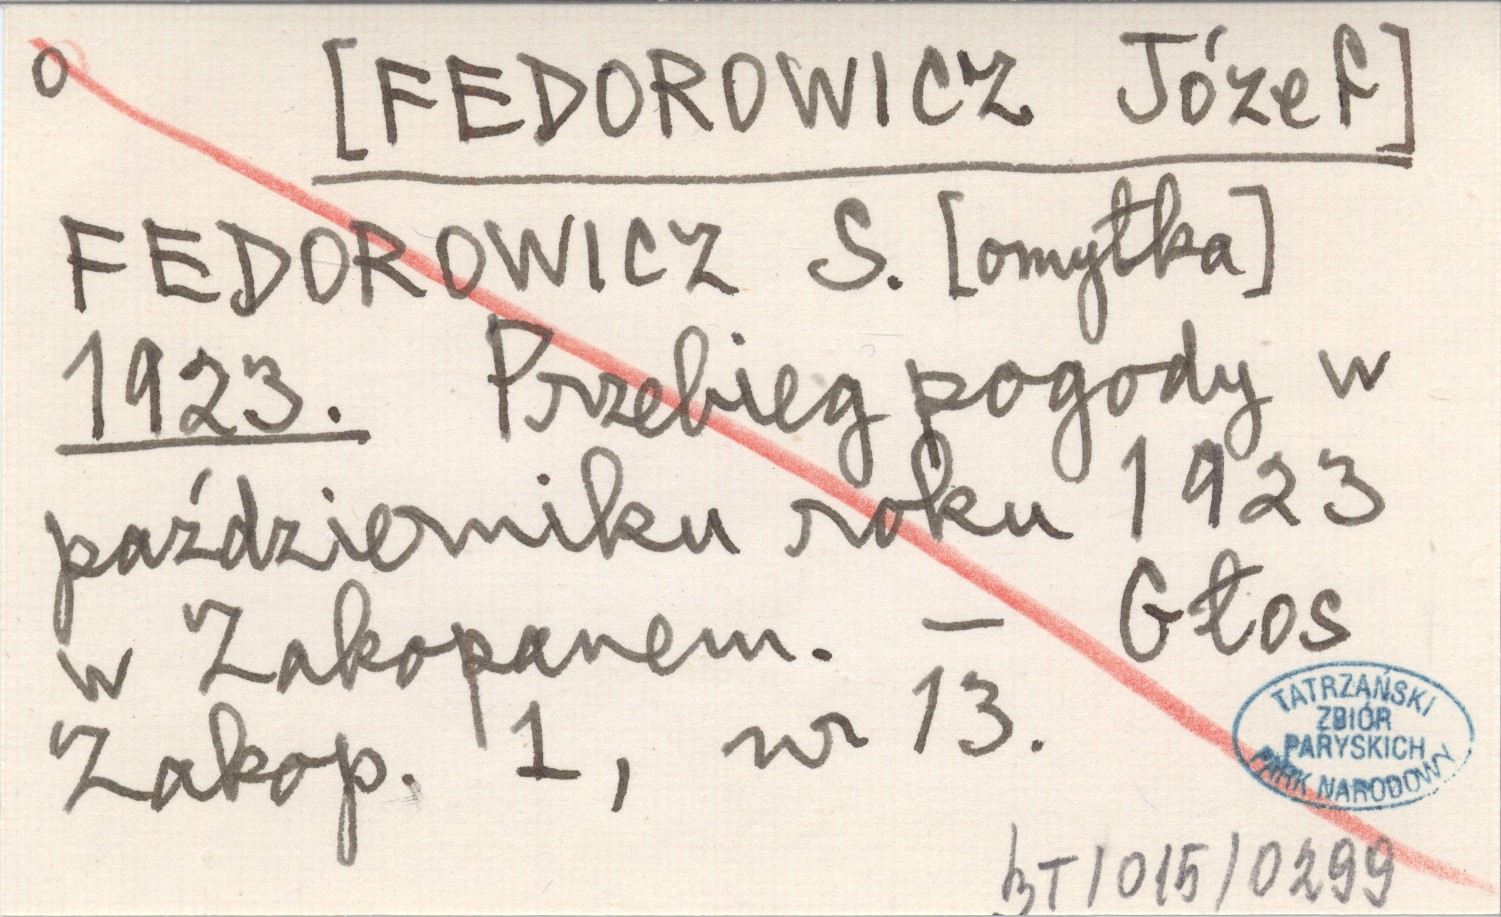 o [FEDOROWICZ Józef]
FEDOROWICZ S. [omyłka]
1923. Przebieg pogody w
październiku roku 1923
w Zakopanem. — Głos
Zakop. 1, nr 13.
TATRZAŃSKI
ZBIÓR
PARYSKICH
PARK NARODOWY
BT/015/0299